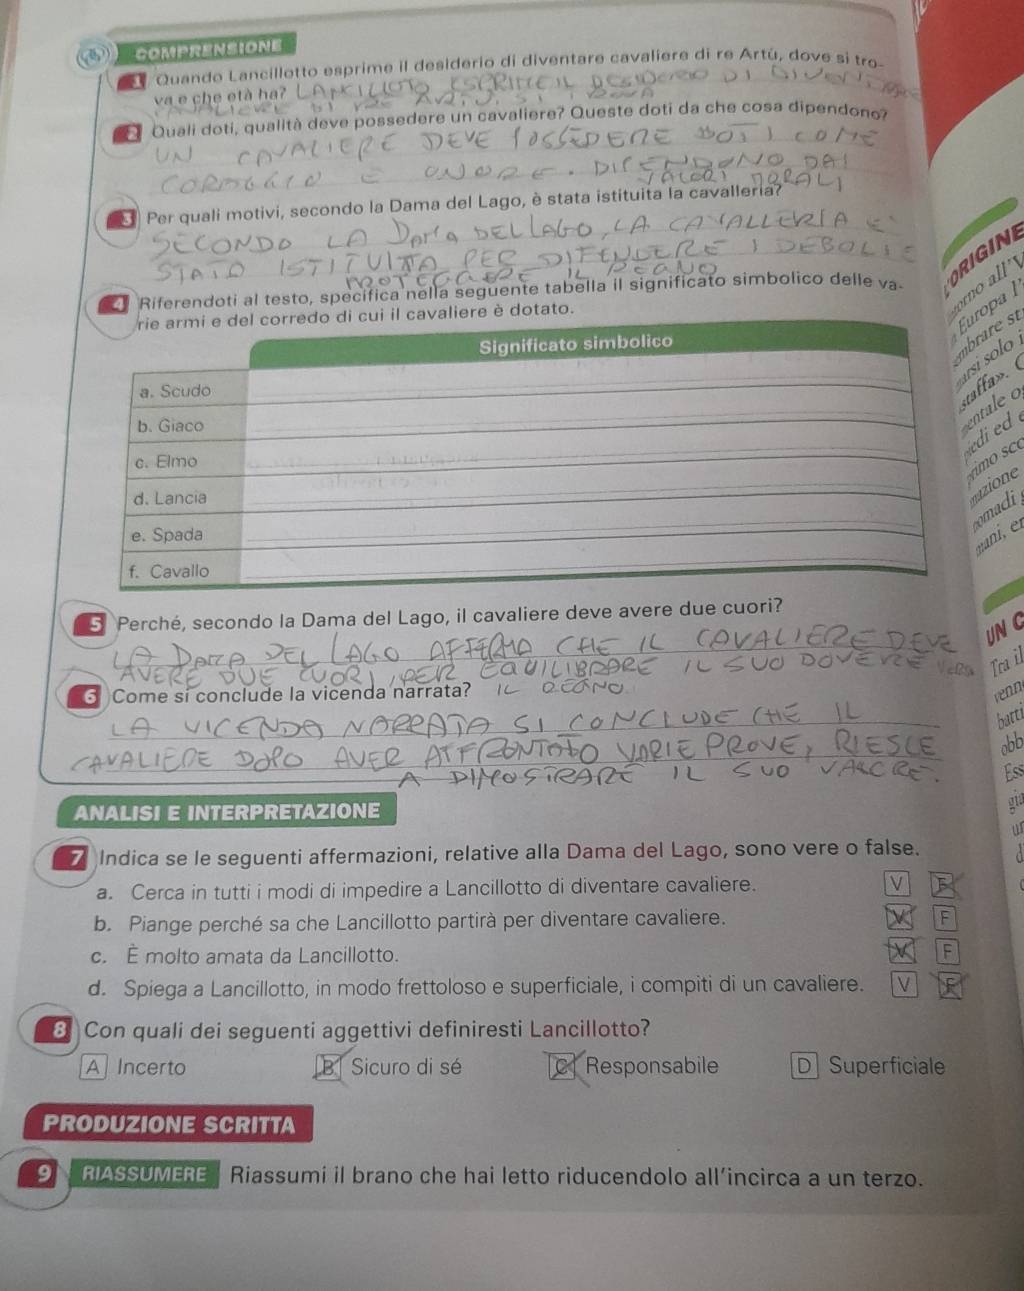 COMPRENSIONE
1 Quando Lancillotto esprime il desiderio di diventare cavaliere di re Artù, dove si tro-
va e che età ha? LANCILLOTO ESPRIME IL DESIDERIO DI DIVENTARE
CAVALIERE DI RE ARTÙ, SI
2 Quali doti, qualità deve possedere un cavaliere? Queste doti da che cosa dipendono?
UN CAVALIERE DEVE POSSEDERE DOTI COME
CORAGGIO E ONORE. DIPENDONO DAI
VALORI MORALI
3 Per quali motivi, secondo la Dama del Lago, è stata istituita la cavalleria?
SECONDO LA DAMA DEL LAGO, LA CAVALLERIA E'
STATA ISTITUITA PER DIFENDERE I DEBOLI E
PROTEGGERE IL REGNO
4 Riferendoti al testo, specifica nella seguente tabella il significato simbolico delle va-
rie armi e del corredo di cui il cavaliere è dotato.
Significato simbolico
a. Scudo
b. Giaco
c. Elmo
d. Lancia
e. Spada
f. Cavallo
5 Perché, secondo la Dama del Lago, il cavaliere deve avere due cuori?
LA DAMA DEL LAGO AFFERMA CHE IL CAVALIERE DEVE
AVERE DUE CUORI, PER EQUILIBRARE IL SUO DOVERE
6 Come si conclude la vicenda narrata? IL
LA VICENDA NARRATA SI CONCLUDE CHE IL
CAVALIERE DOPO AVER AFFRONTATO VARIE PROVE, RIESCE
A DIMOSTRARE IL SUO VALORE.
ANALISI E INTERPRETAZIONE
7 Indica se le seguenti affermazioni, relative alla Dama del Lago, sono vere o false.
a. Cerca in tutti i modi di impedire a Lancillotto di diventare cavaliere. V F
b. Piange perché sa che Lancillotto partirà per diventare cavaliere. V F
c. È molto amata da Lancillotto. V F
d. Spiega a Lancillotto, in modo frettoloso e superficiale, i compiti di un cavaliere. V F
8 Con quali dei seguenti aggettivi definiresti Lancillotto?
A Incerto B Sicuro di sé C Responsabile D Superficiale
PRODUZIONE SCRITTA
9 RIASSUMERE Riassumi il brano che hai letto riducendolo all'incirca a un terzo.
L'ORIGINE
Europa l'
staffa». C
piedi ed
primo sco
mazione
nomadi
mani, er
UN C
Tra il
venn
batti
obb
Ess
gia